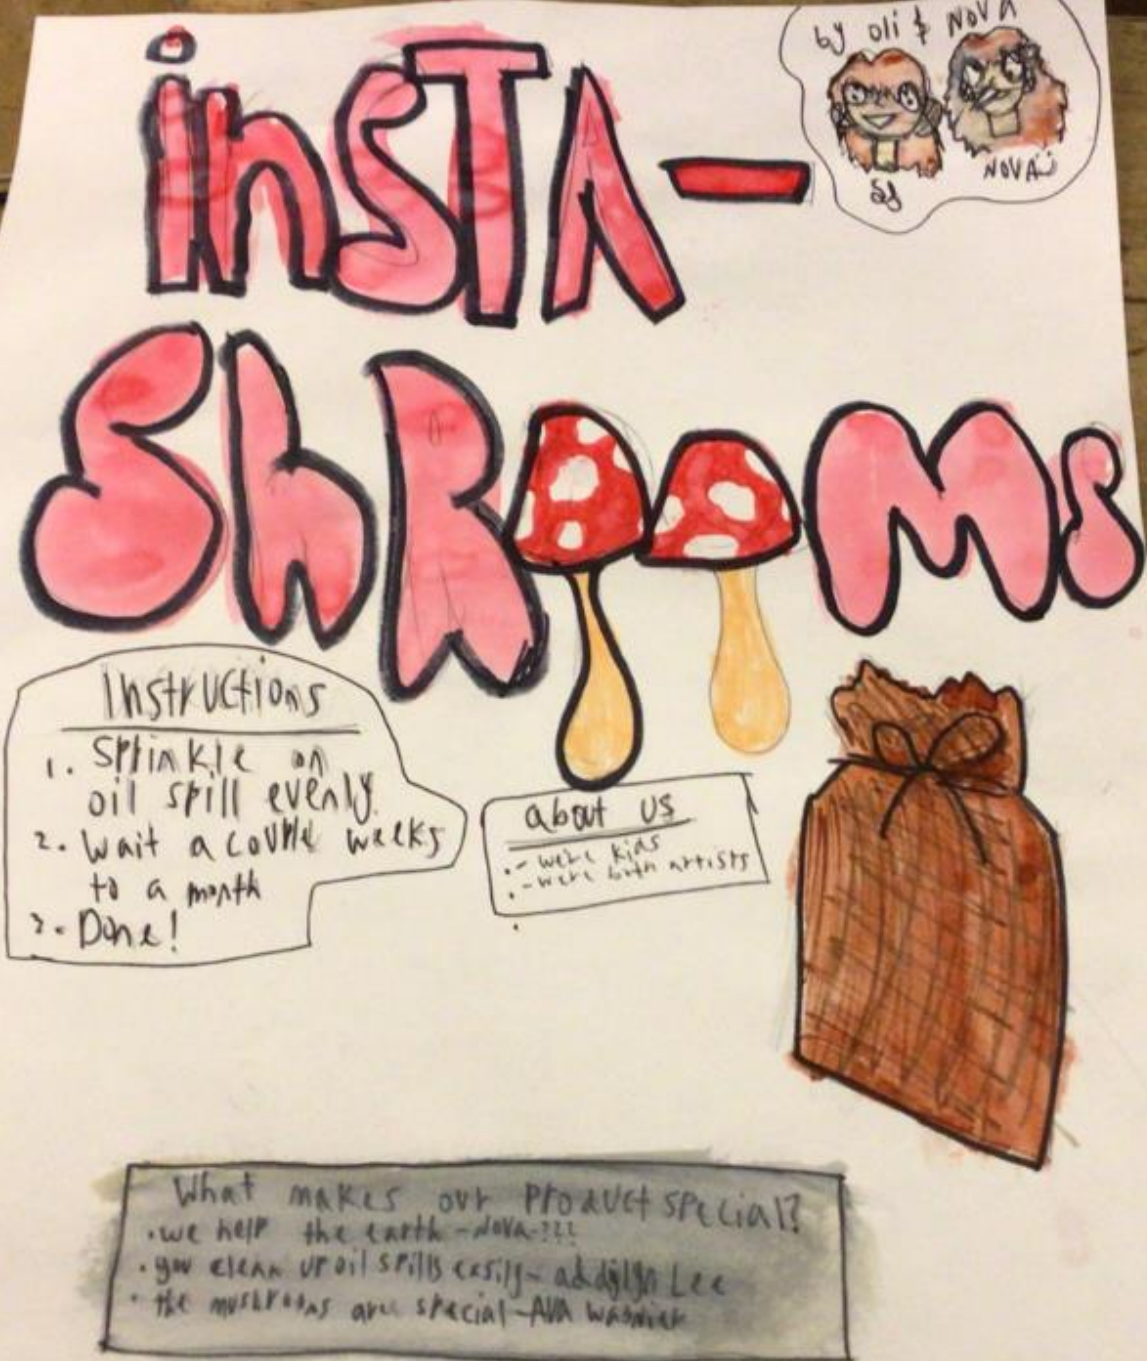 by Oli & NOVA
NOVA
inSTA-
ShRooMs
Instructions
1. Sprinkle on
oil spill evenly.
2. Wait a couple weeks
to a month
3. Done!
about us
- we're kids
- we're both artists
What makes our product special?
• we help the earth - Nova - ???
• you clean up oil spills easily - addylyn Lee
• the mushrooms are special - Ava